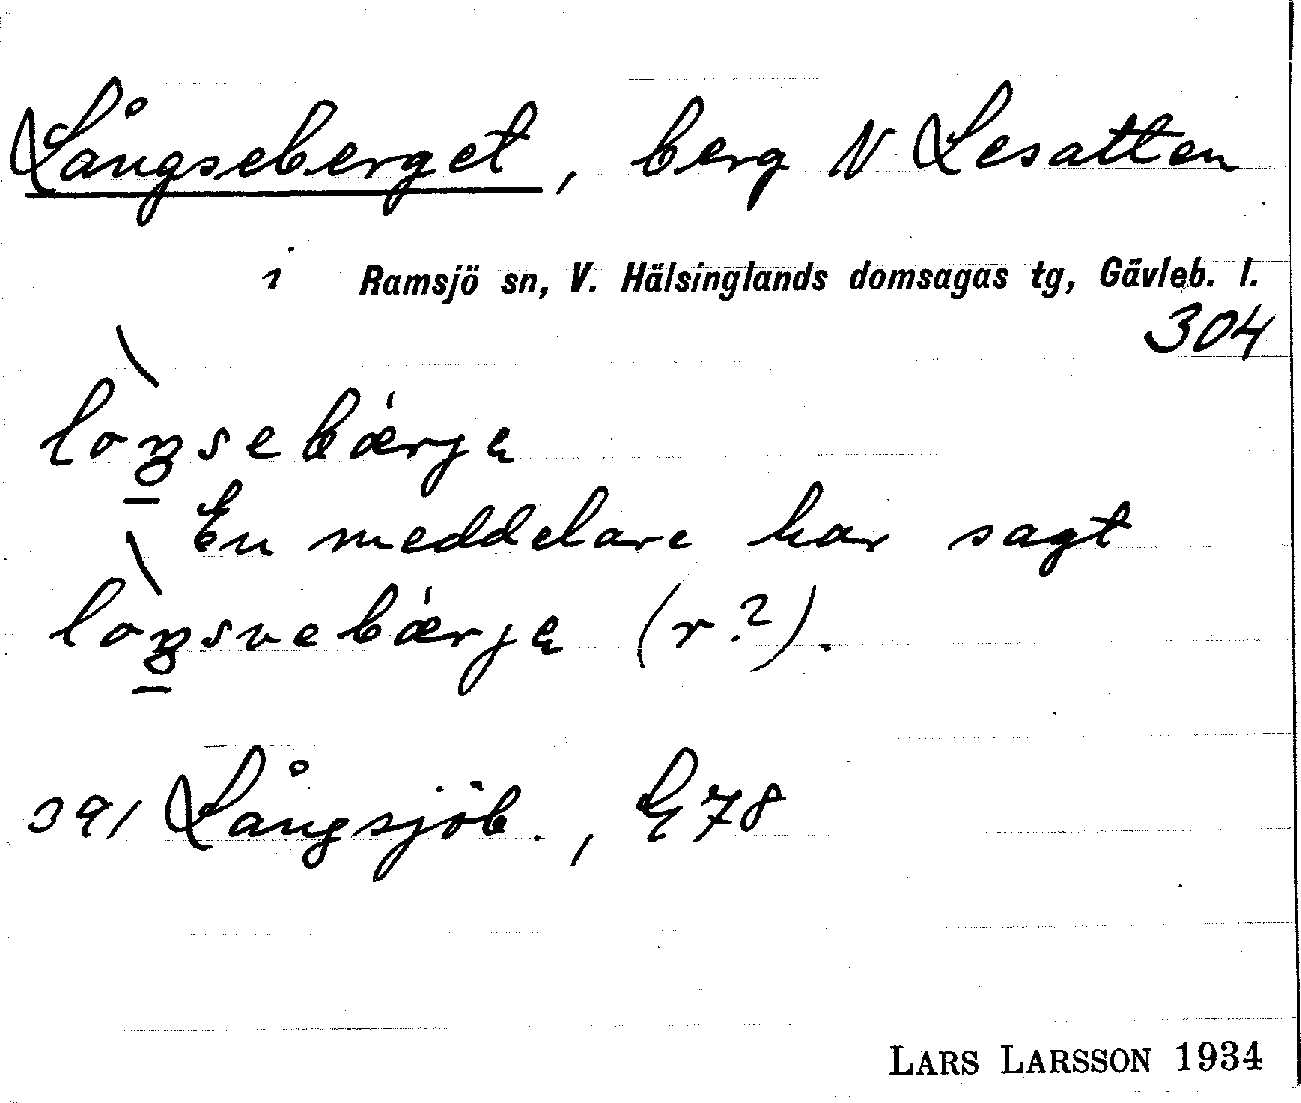 Långseberget, berg N Lesatten
i Ramsjö sn, V. Hälsinglands domsagas tg, Gävleb. l.
304
loŋsebærje
En meddelare har sagt
loŋsvebærje (r?).
391 Långsjöb., G78
LARS LARSSON 1934